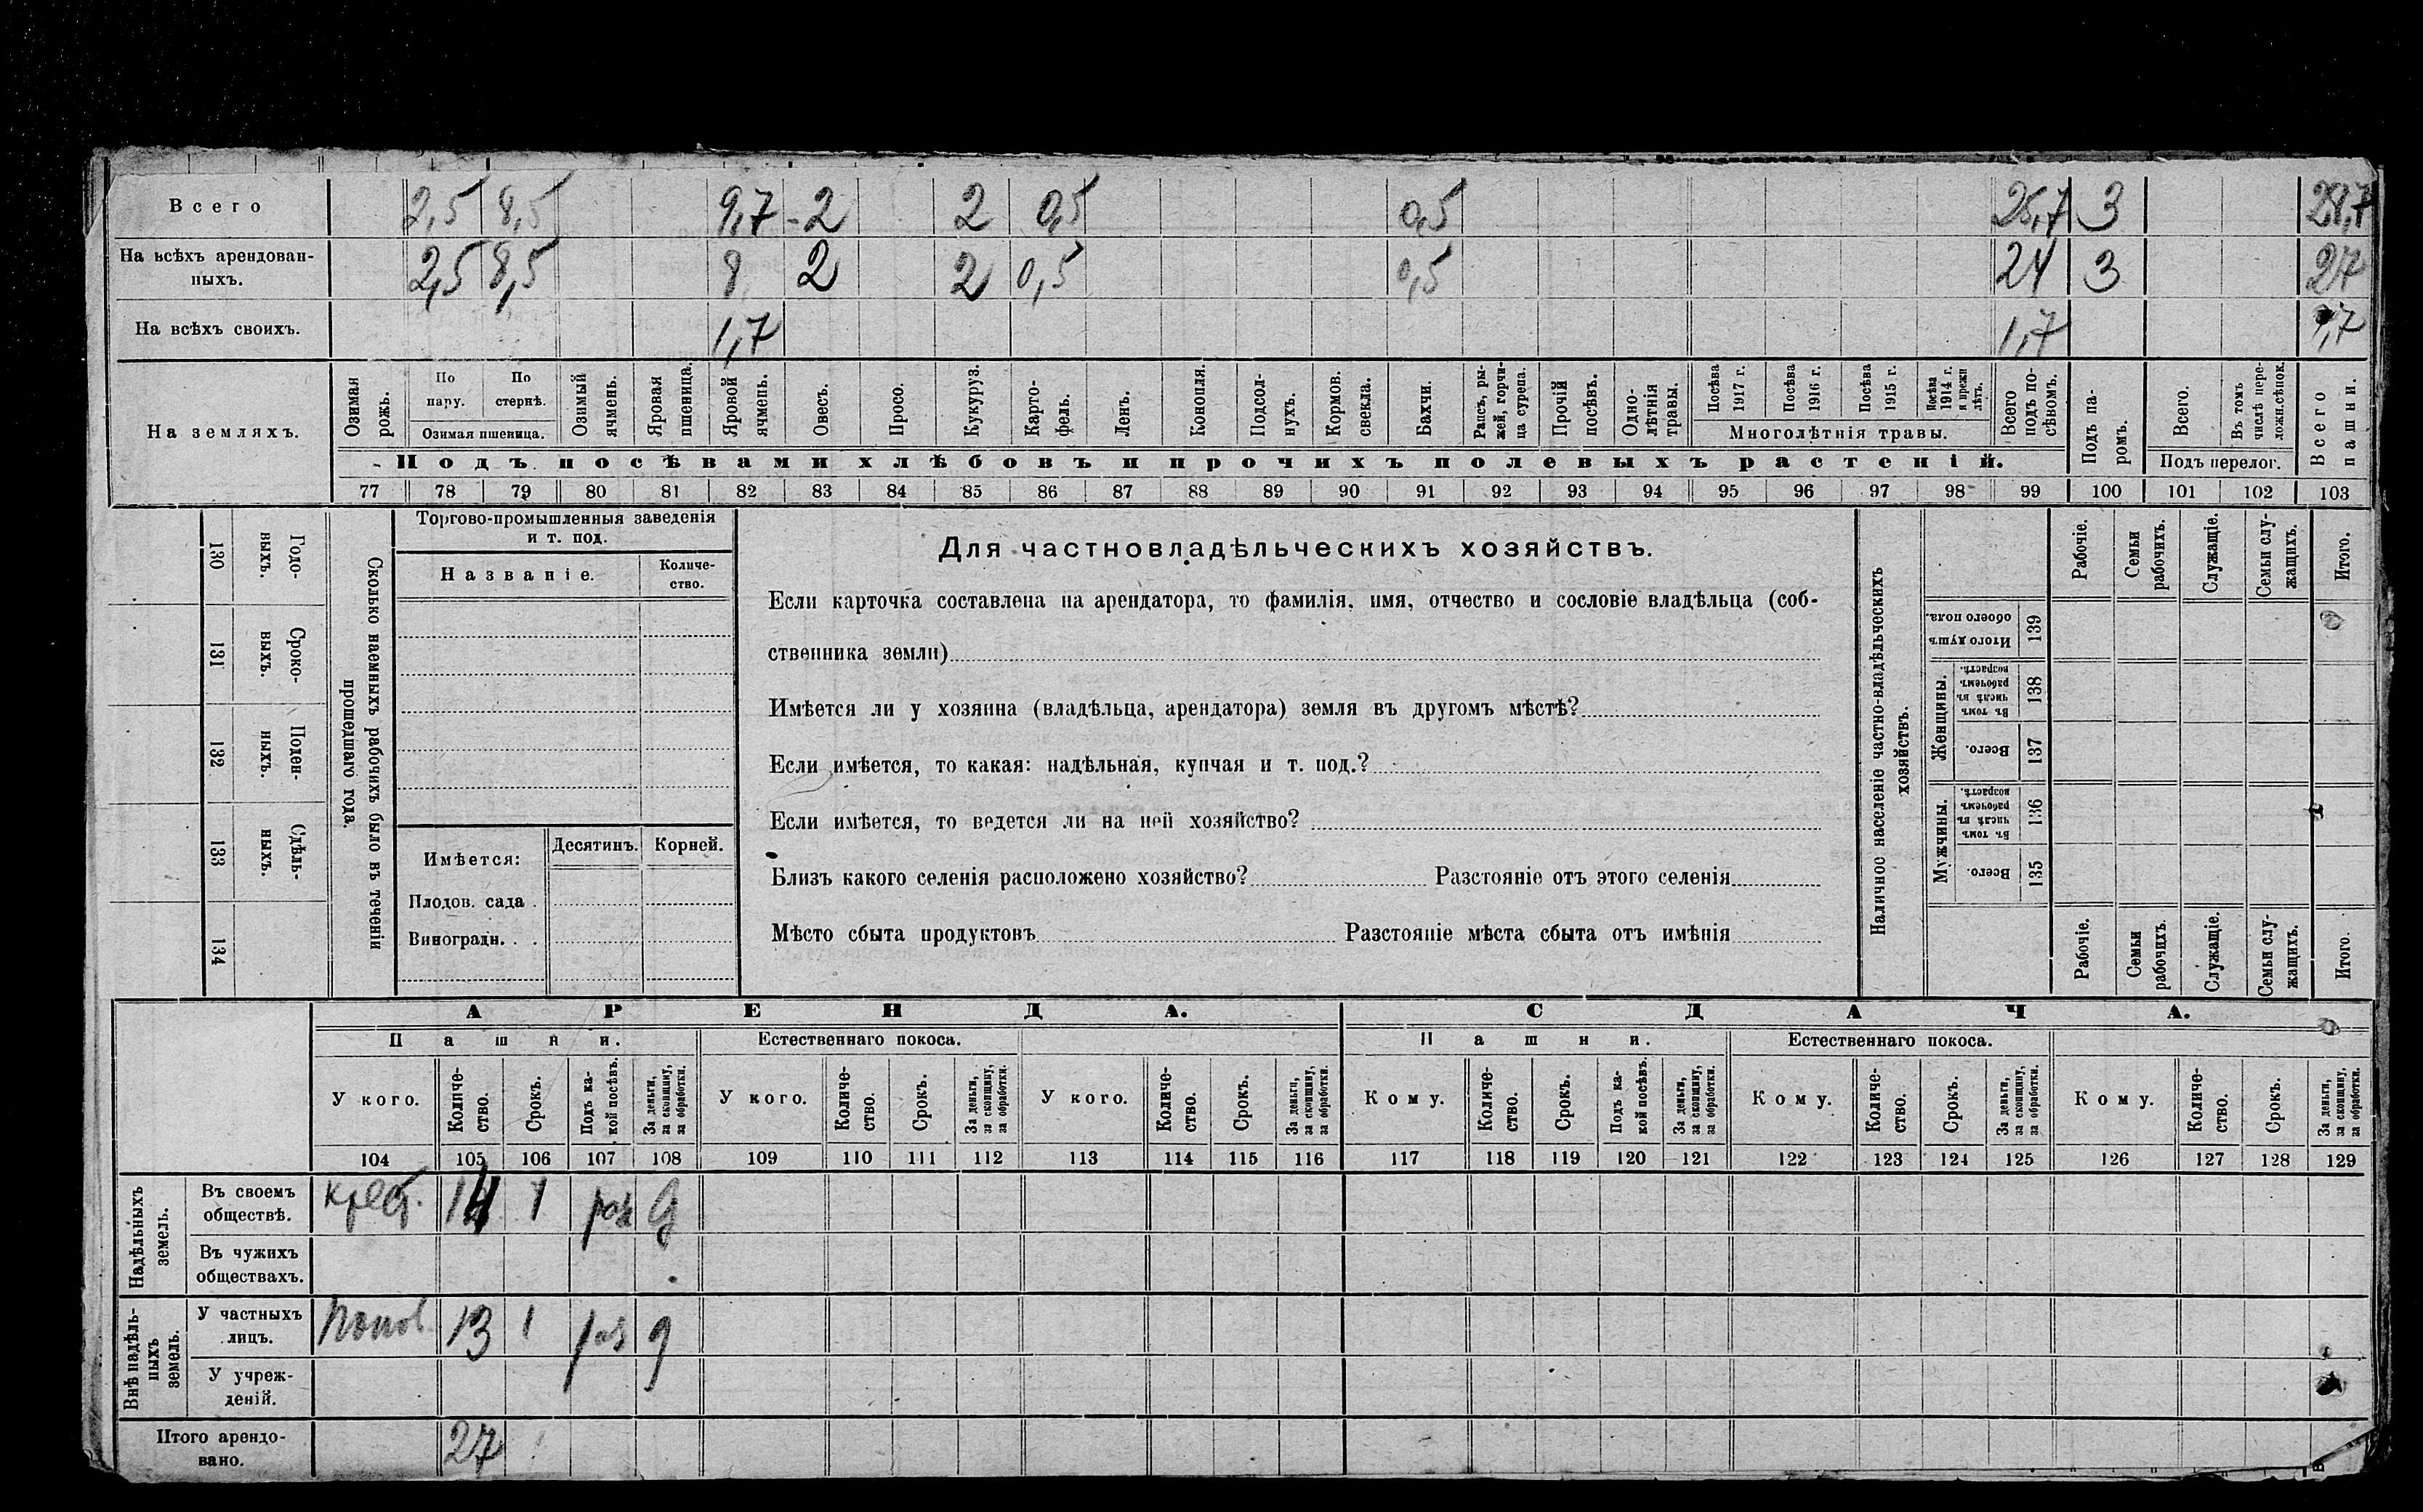 Всего 2,5 8,5 9,7 - 2 2 0,5 0,5 25,7 3 28,7
На всѣхъ арендован-
ныхъ. 2,5 8,5 8 2 2 0,5 0,5 24 3 27
На всѣхъ своихъ. 1,7 1,7 1,7
На земляхъ.
Озимая рожь.
По пару.
По стернѣ.
Озимая пшеница.
Озимый ячмень.
Яровая пшеница.
Яровой ячмень.
Овесъ.
Просо.
Кукуруз.
Карто-
фель.
Ленъ.
Конопля.
Подсол-
нухъ.
Кормов.
свекла.
Бахчи.
Рапсъ, ры-
жей, горчи-
ца сурепа.
Прочій
посѣвъ.
Одно-
лѣтнія
травы.
Посѣва
1917 г.
Посѣва
1916 г.
Посѣва
1915 г.
Посѣва
1914 г.
и прежн
лѣтъ.
Многолѣтнія травы.
Всего
подъ по-
сѣвомъ.
Подъ па-
ромъ.
Всего.
Въ томъ
числѣ пере-
ложн.сѣнок.
Подъ перелог.
Всего
пашни.
Подъ посѣвами хлѣбовъ и прочихъ полевыхъ растеній.
77 78 79 80 81 82 83 84 85 86 87 88 89 90 91 92 93 94 95 96 97 98 99 100 101 102 103
130 Годо-
выхъ.
131 Сроко-
выхъ.
132 Поден-
ныхъ.
133 Сдѣль-
ныхъ.
134
Сколько наемныхъ рабочихъ было въ теченіи
прошедшаго года.
Торгово-промышленныя заведенія
и т. под.
Названіе.
Количе-
ство.
Имѣется:
Десятинъ.
Корней.
Плодов. сада .
Виноградн. . .
Для частновладѣльческихъ хозяйствъ.
Если карточка составлена на арендатора, то фамилія, имя, отчество и сословіе владѣльца (соб-
ственника земли)
Имѣется ли у хозяина (владѣльца, арендатора) земля въ другомъ мѣстѣ?
Если имѣется, то какая: надѣльная, купчая и т. под.?
Если имѣется, то ведется ли на ней хозяйство?
Близъ какого селенія расположено хозяйство? Разстояніе отъ этого селенія
Мѣсто сбыта продуктовъ Разстояніе мѣста сбыта отъ имѣнія
Наличное населеніе частно-владѣльческихъ
хозяйствъ.
Рабочіе.
Семьи
рабочихъ.
Служащіе.
Семьи слу-
жащихъ.
Итого.
Итого душъ
обоего пола.
139
Женщины.
Въ томъ
числѣ въ
рабочемъ
возрастѣ.
138
Всего.
137
Мужчины.
Въ томъ
числѣ въ
рабочемъ
возрастѣ.
136
Всего.
135
Рабочіе.
Семьи
рабочихъ.
Служащіе.
Семьи слу-
жащихъ.
Итого.
АРЕНДА. СДАЧА.
Пашни. Естественнаго покоса. Пашни. Естественнаго покоса.
У кого.
Количе-
ство.
Срокъ.
Подъ ка-
кой посѣвъ.
За деньги,
за скопщину,
за обработки.
У кого.
Количе-
ство.
Срокъ.
За деньги,
за скопщину,
за обработки.
У кого.
Количе-
ство.
Срокъ.
За деньги,
за скопщину,
за обработки.
Кому.
Количе-
ство.
Срокъ.
Подъ ка-
кой посѣвъ.
За деньги,
за скопщину,
за обработки.
Кому.
Количе-
ство.
Срокъ.
За деньги,
за скопщину,
за обработки.
Кому.
Количе-
ство.
Срокъ.
За деньги,
за скопщину,
за обработки.
104 105 106 107 108 109 110 111 112 113 114 115 116 117 118 119 120 121 122 123 124 125 126 127 128 129
Надѣльныхъ
земель.
Въ своемъ
обществѣ. крест. 14 1 раз д
Въ чужихъ
обществахъ.
Внѣ надѣль-
ныхъ
земель.
У частныхъ
лицъ. 13 1 раз д
У учреж-
деній.
Итого арендо-
вано. 27